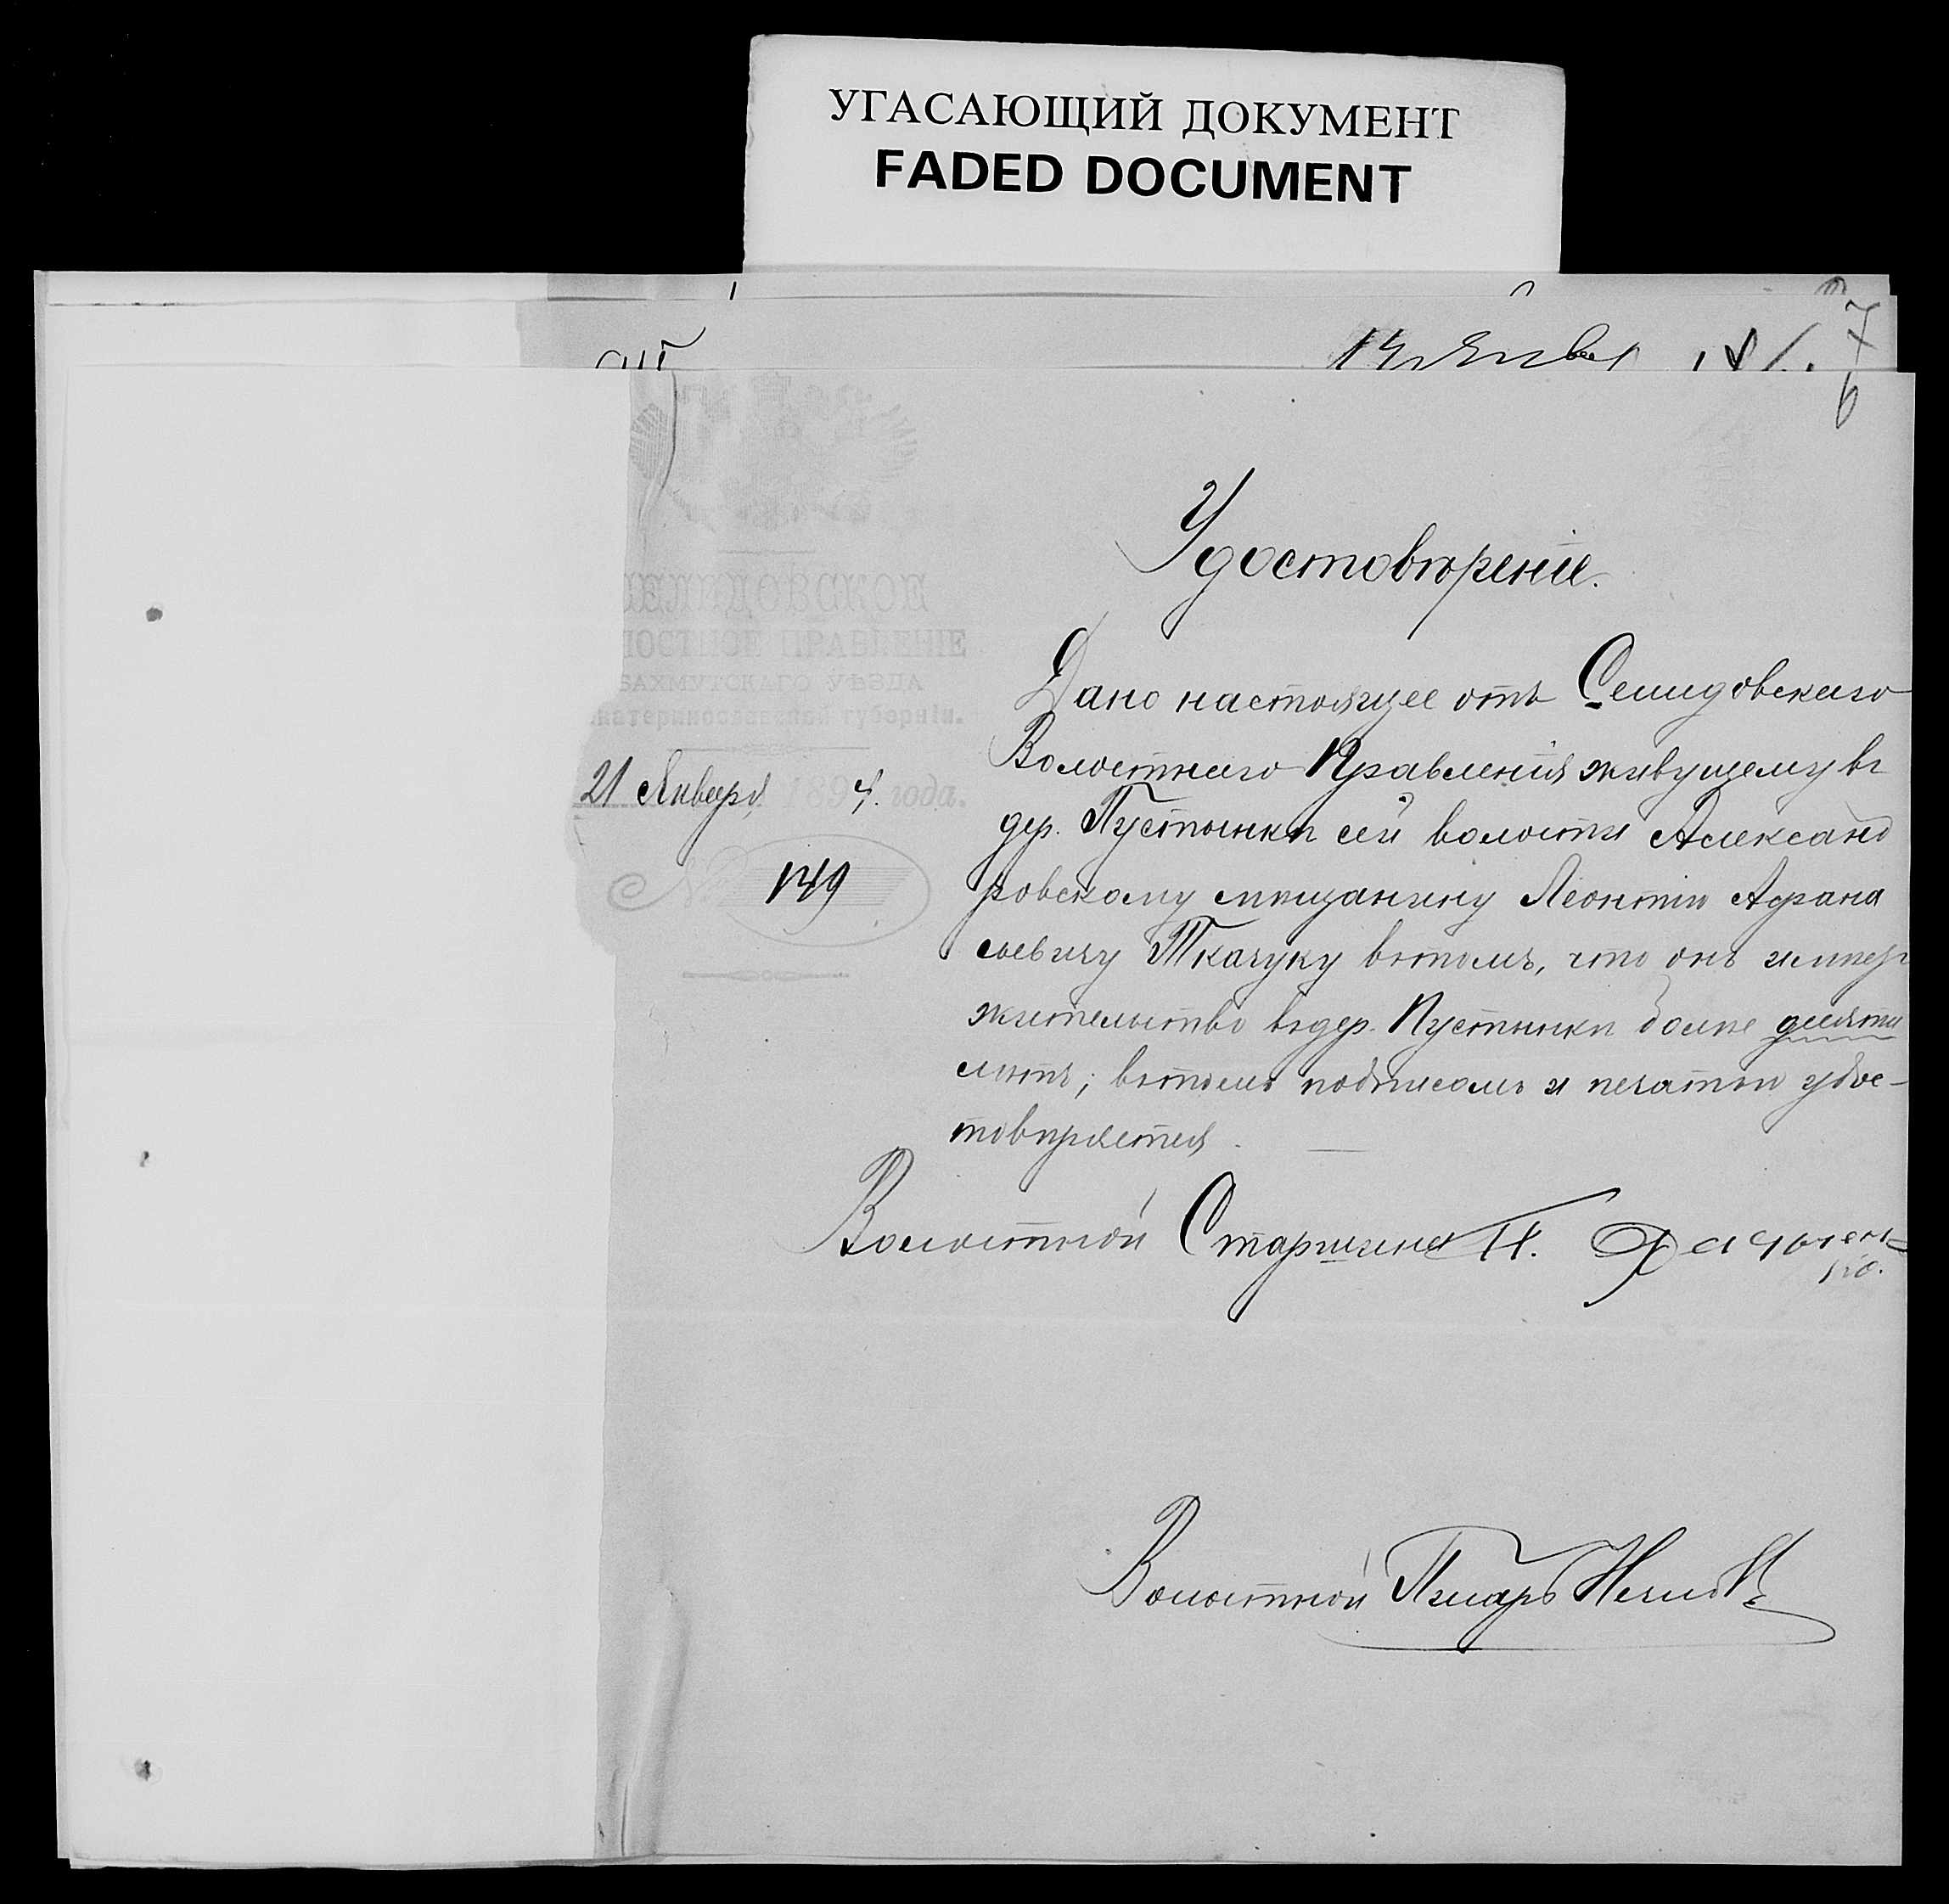 УГАСАЮЩИЙ ДОКУМЕНТ
FADED DOCUMENT
7
6
ЕЛИДОВСКОЕ
ЛОСТНОЕ ПРАВЛЕНІЕ
БАХМУТСКАГО УѢЗДА
катеринославской губерніи.
21 Января 1894. года.
№ 149
Удостовѣреніе.
Дано настоящее отъ Селидовскаго
Волостнаго Правленія живущему въ
дер. Пустынкѣ сей волости Александ
ровскому мѣщанину Леонтію Афана
сьевичу Ткачуку въ томъ, что онъ имѣетъ
жительство въ дер. Пустынкѣ болѣе десяти
лѣтъ; въ томъ подписомъ и печатью удос-
товѣряется.
Волостной Старшина Н.
Волостной Писарь